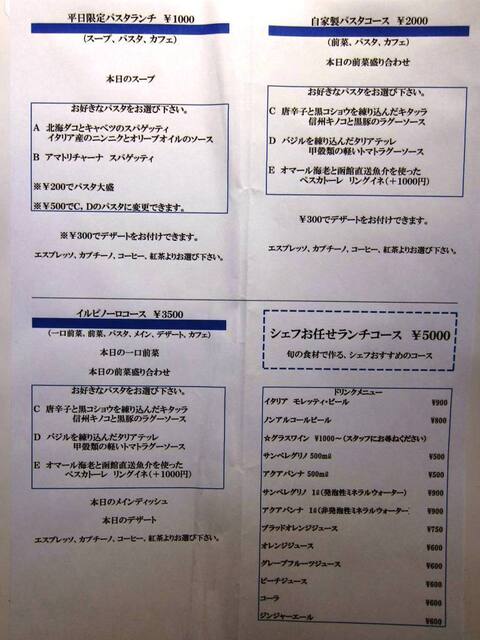 平日限定パスタランチ ￥1000
(スープ、パスタ、カフェ)
本日のスープ
お好きなパスタをお選び下さい。
A 北海ダコとキャベツのスパゲッティ
イタリア産のニンニクとオリーブオイルのソース
B アマトリチャーナ スパゲッティ
※￥200でパスタ大盛
※￥500でC，Dのパスタに変更できます。
※￥300でデザートをお付けできます。
エスプレッソ、カプチーノ、コーヒー、紅茶よりお選び下さい。
自家製パスタコース ￥2000
(前菜、パスタ、カフェ)
本日の前菜盛り合わせ
お好きなパスタをお選び下さい。
C 唐辛子と黒コショウを練り込んだキタッラ
信州キノコと黒豚のラグーソース
D バジルを練り込んだタリアテッレ
甲殻類の軽いトマトラグーソース
E オマール海老と函館直送魚介を使った
ペスカトーレ リングイネ(＋1000円)
￥300でデザートをお付けできます。
エスプレッソ、カプチーノ、コーヒー、紅茶よりお選び下さい。
イルピノーロコース ￥3500
(一口前菜、前菜、パスタ、メイン、デザート、カフェ)
本日の一口前菜
本日の前菜盛り合わせ
お好きなパスタをお選び下さい。
C 唐辛子と黒コショウを練り込んだキタッラ
信州キノコと黒豚のラグーソース
D バジルを練り込んだタリアテッレ
甲殻類の軽いトマトラグーソース
E オマール海老と函館直送魚介を使った
ペスカトーレ リングイネ(＋1000円)
本日のメインディッシュ
本日のデザート
エスプレッソ、カプチーノ、コーヒー、紅茶よりお選び下さい。
シェフお任せランチコース ￥5000
旬の食材で作る、シェフおすすめのコース
ドリンクメニュー
イタリア モレッティ・ビール ¥900
ノンアルコールビール ¥800
☆グラスワイン ¥1000～(スタッフにお尋ねください)
サンペレグリノ 500mℓ ¥500
アクアパンナ 500mℓ ¥500
サンペレグリノ 1ℓ(発泡性ミネラルウォーター) ¥900
アクアパンナ 1ℓ(非発泡性ミネラルウォーター) ¥900
ブラッドオレンジジュース ¥750
オレンジジュース ¥600
グレープフルーツジュース ¥600
ピーチジュース ¥600
コーラ ¥600
ジンジャーエール ¥600